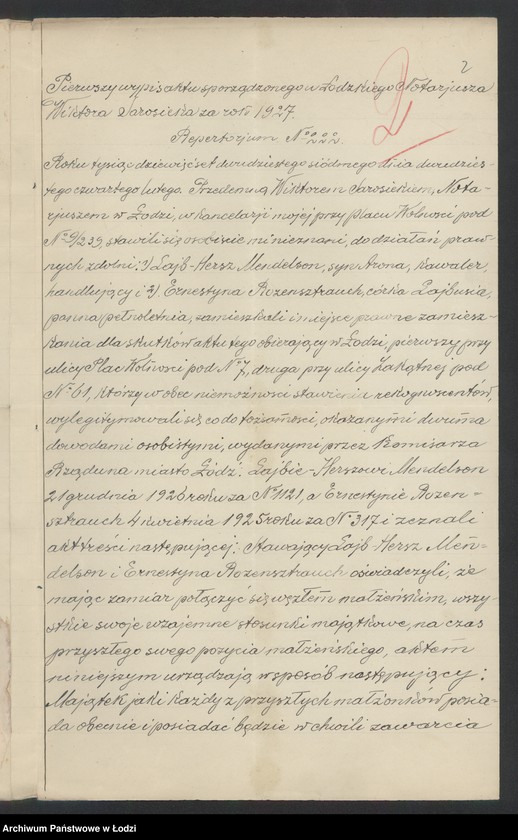 2
Pierwszy wypis aktu sporządzonego w Łódzkiego Notarjusza
Wiktora Sarosieka za rok 1927.
Repertorjum №
Roku tysiąc dziewięćset dwudziestego siódmego dnia dwudzies-
tego czwartego lutego. Przedemną Wiktorem Sarosiekiem, Nota-
rjuszem w Łodzi, w kancelarji mojej przy placu Wolności pod
№ 9/239, stawili się osobiście mi nieznani, do działań praw-
nych zdolni: 1/ Lajb-Hersz Mendelson, syn Arona, kawaler,
handlujący i 2/ Ernestyna Rozensztrauch, córka Lajbusia,
panna pełnoletnia, zamieszkali i miejsce prawne zamiesz-
kania dla skutków aktu tego obierający w Łodzi, pierwszy przy
ulicy Plac Wolności pod № 7, druga przy ulicy Zakątnej pod
№ 61, którzy wobec niemożności stawienia rekognoscentów,
wylegitymowali się co do tożsamości, okazanymi dwuma
dowodami osobistymi, wydanymi przez Komisarza
Rządu na miasto Łódź: Lajbie-Herszowi Mendelson
21 grudnia 1926 roku za № 1121, a Ernestynie Rozen-
sztrauch 4 kwietnia 1925 roku za № 317 i zeznali
akt treści następującej: Stawający Lajb Hersz Men-
delson i Ernestyna Rozensztrauch oświadczyli, że
mając zamiar połączyć się węzłem małżeńskim, wszy-
stkie swoje wzajemne stosunki majątkowe, na czas
przyszłego swego pożycia małżeńskiego, aktem
niniejszym urządzają w sposób następujący:
Majątek jaki każdy z przyszłych małżonków posia-
da obecnie i posiadać będzie w chwili zawarcia
Archiwum Państwowe w Łodzi